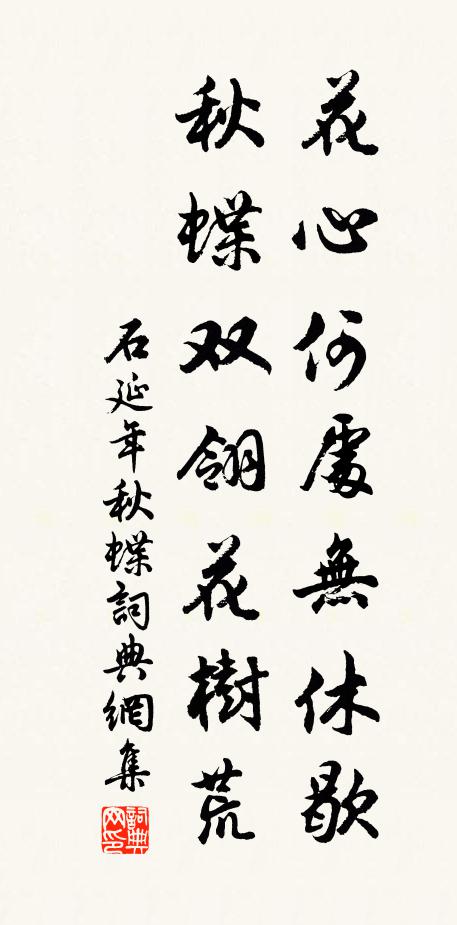 花心何處無休歇
秋蝶双翎花樹荒
石延年秋蝶詞典網集
詞典网印